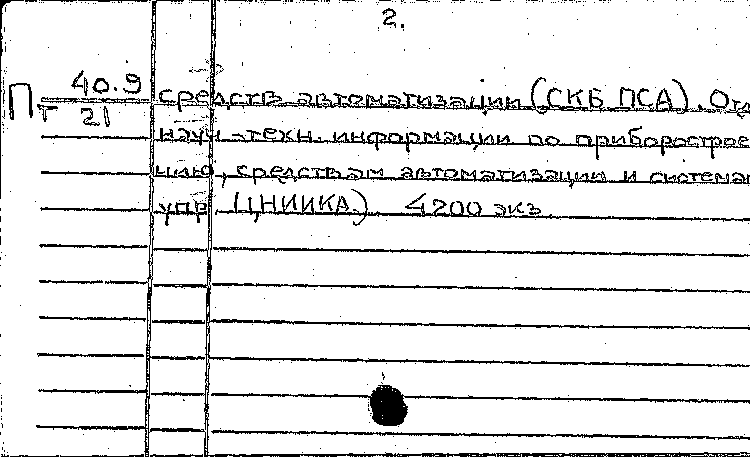 2.
П 40.9
Т 21
средств автоматизации (СКБ ПСА). Отд
науч-техн. информации по приборострое
нию, средствам автоматизации и система
упр. (ЦНИИКА). 4200 экз.